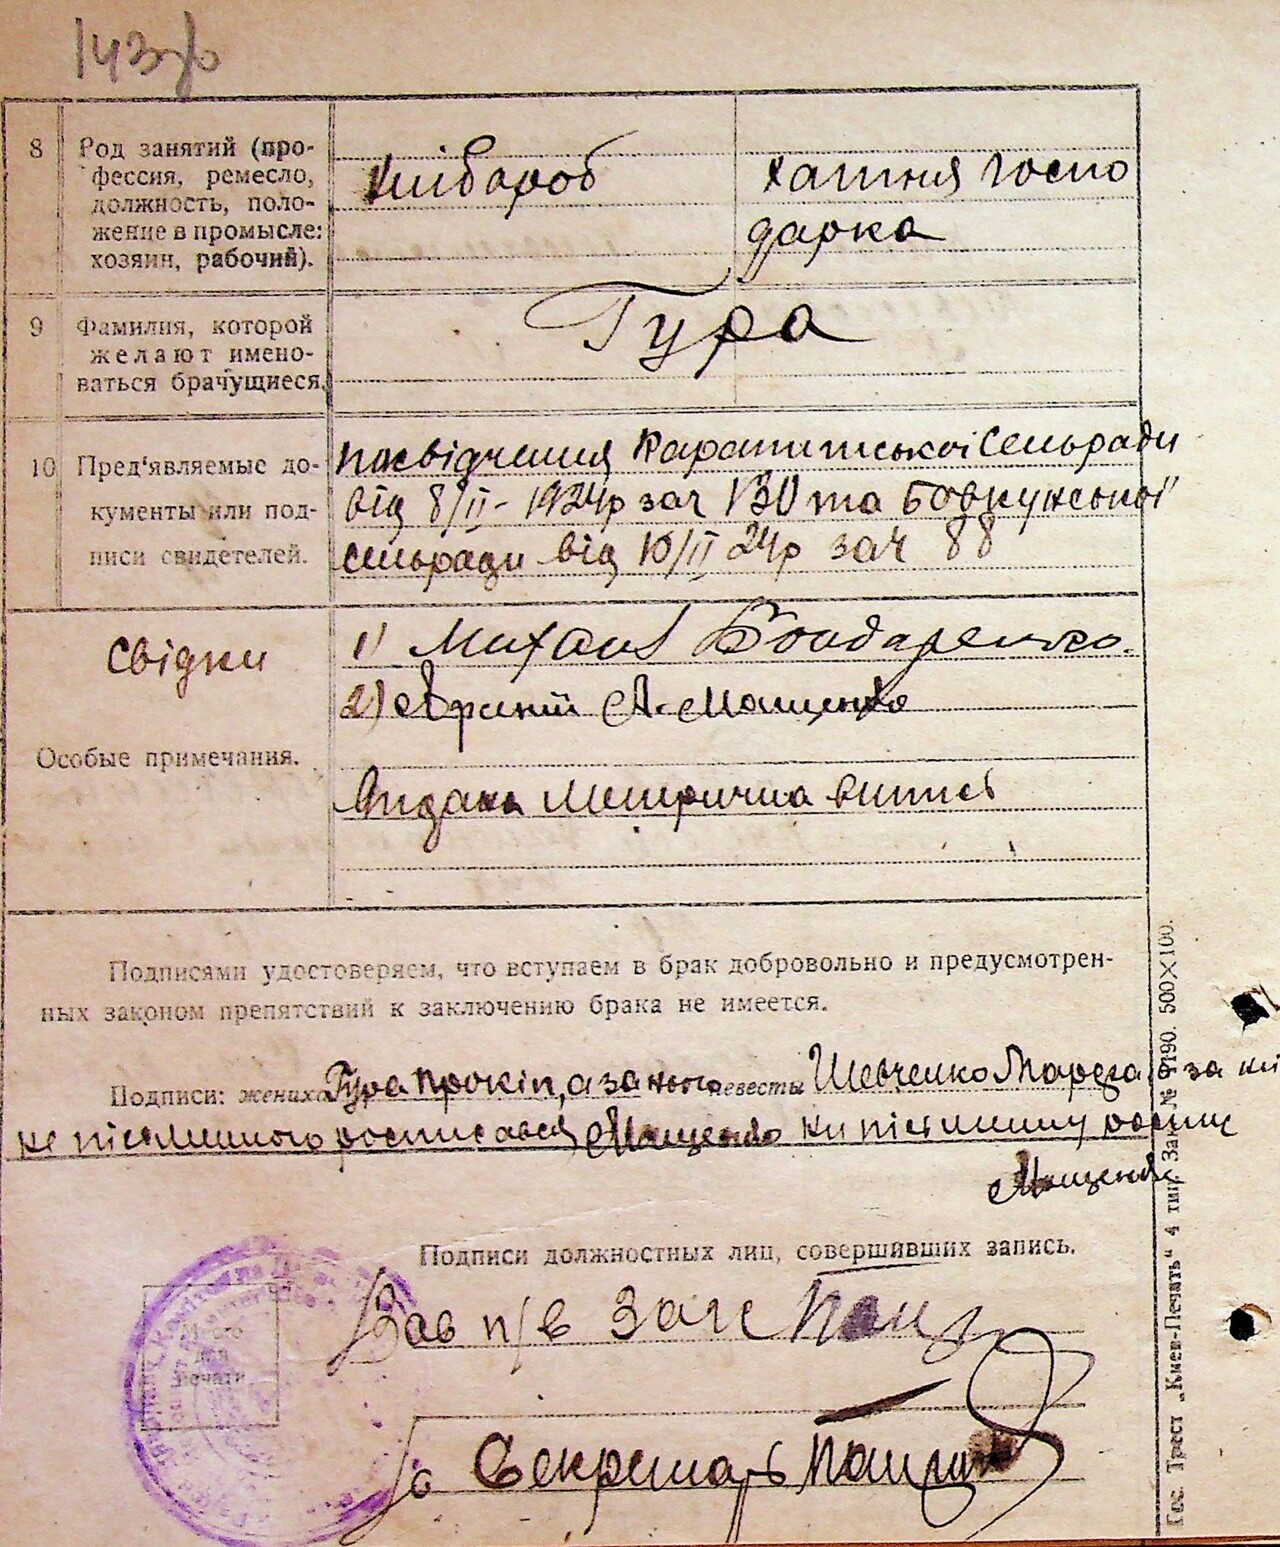 143
8 Род занятий (про-
фессия, ремесло,
должность, поло-
жение в промысле:
хозяин, рабочий).
хлібороб
хатня госпо
дарка
9 Фамилия, которой
желают имено-
ваться брачущиеся.
Гура
10 Пред'являемые до-
кументы или под-
писи свидетелей.
посвідчення Карапишської Сельради
від 8/II - 1924р зач 130 та Бовкунської
сельради від 10/II 24р зач 88
Свідки
1) Михаил Бондаренко.
2) А. Мащенко
Особые примечания.
Видана Метрична витись
Подписями удостоверяем, что вступаем в брак добровольно и предусмотрен-
ных законом препятствий к заключению брака не имеется.
Подписи: жениха Гура Прокіп, а за нього невесты Шевченко а за не
не писменного росписався Мащенко не писменну роспис
Мащенко
Подписи должностных лиц, совершивших запись.
Место
для
печати
Зав п/в Загс
Секретарь
Гос. Трест „Киев-Печать“ 4 тип. Зак. № 9190. 500×100.